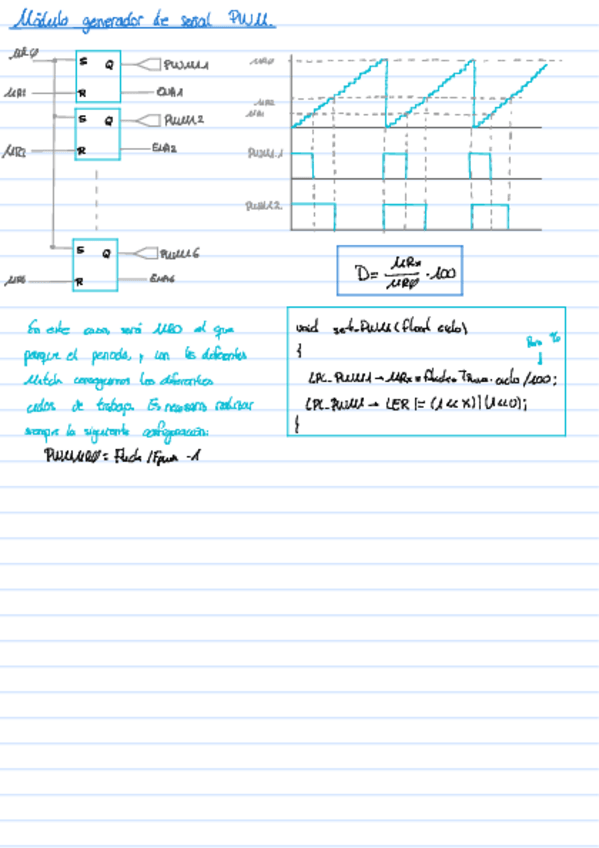 Módulo generador de señal PWM.
MRØ
S Q PWM1.1
MR1 R ENA1
S Q PWM1.2
MR2 R ENA2
S Q PWM1.6
MR6 R ENA6
MRØ
MR2
MR1
PWM1.1
PWM1.2
D = MRx / MRØ · 100
En este caso, será MR0 el que
ponga el periodo, y con los diferentes
Match conseguimos los diferentes
ciclos de trabajo. Es necesario realizar
siempre la siguiente configuración:
PWM1MRØ = Fclk / Fpwm -1
void set_PWM (float ciclo)
{
%
LPC_PWM1 → MRx = ciclo /100;
LPC_PWM1 → LER |= (1<<X)|(1<<0);
{